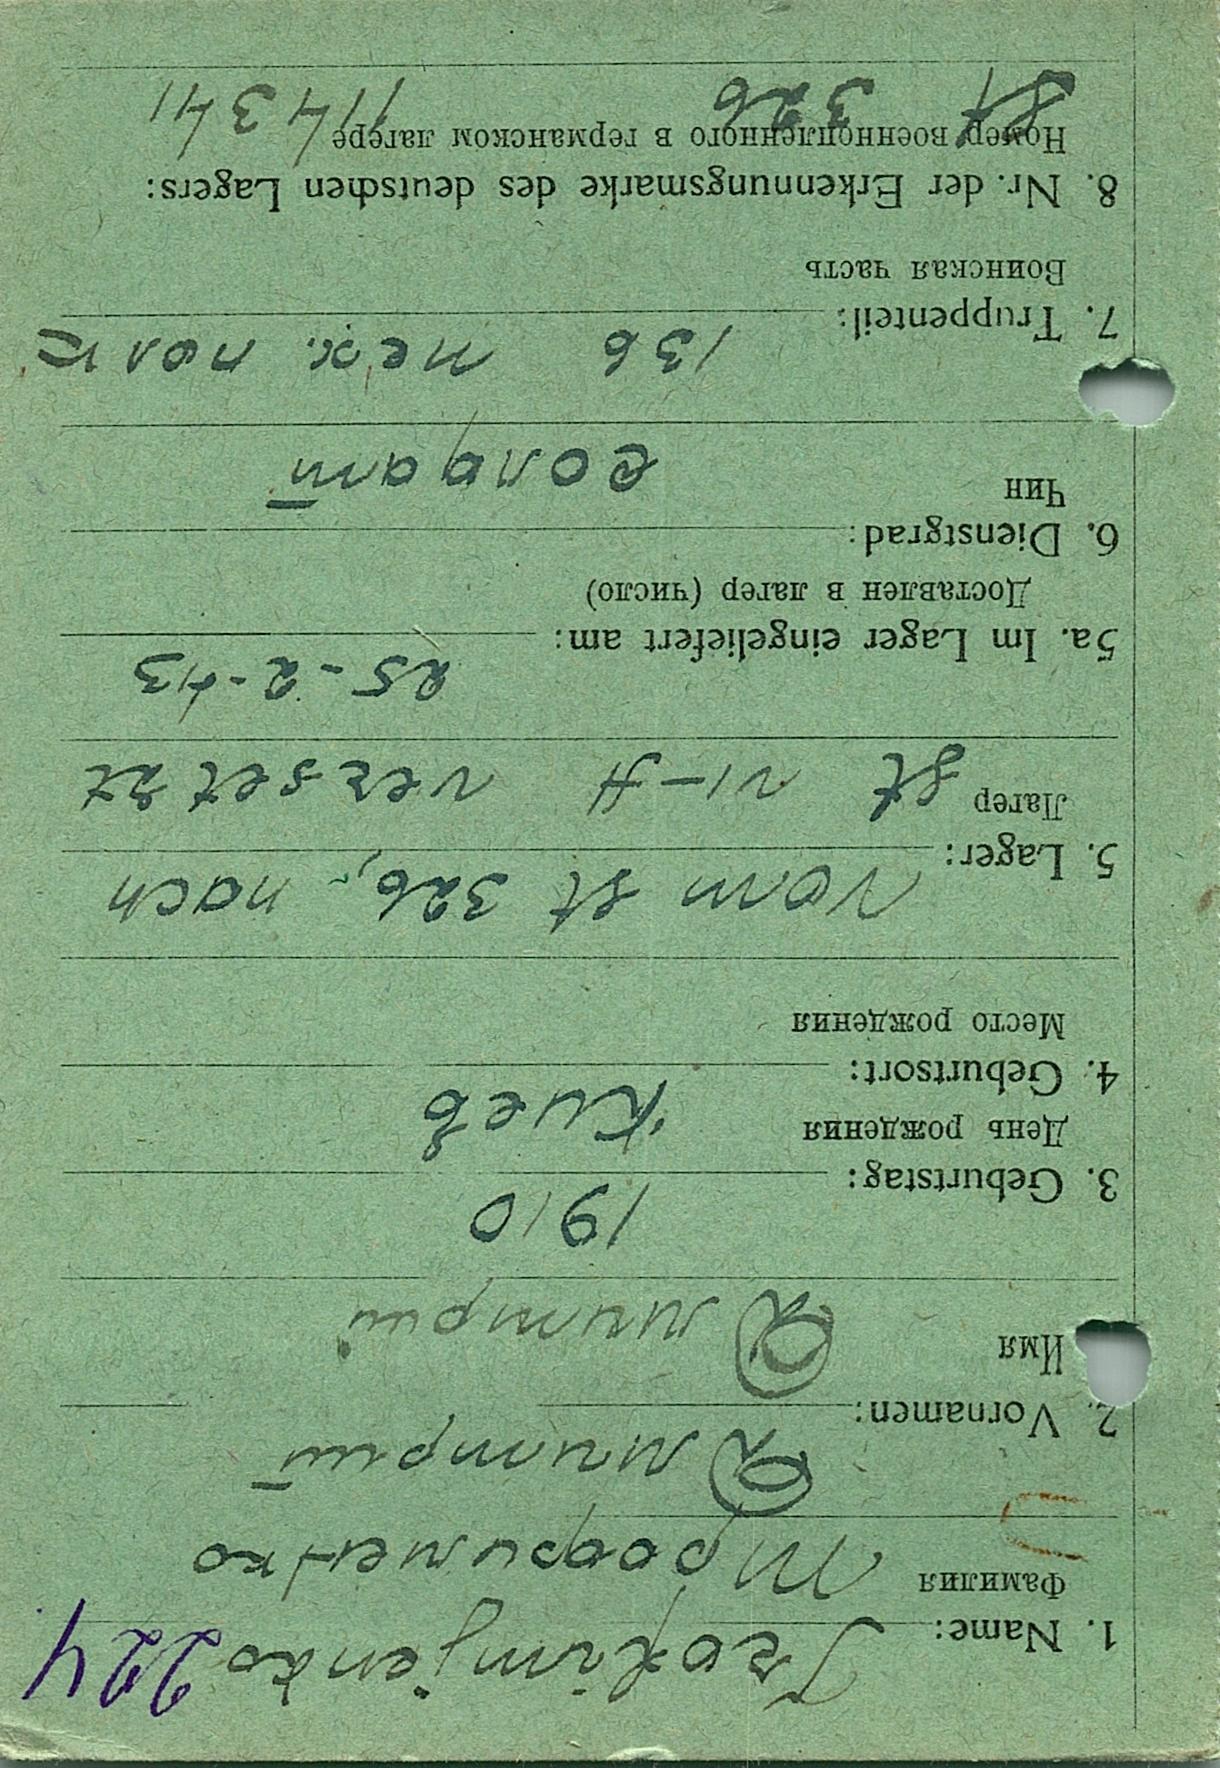 Trofimjenko 224
1. Name:
Фамилия Трофименко
Дмитрий
2. Vornamen:
Имя Дмитрий
1910
3. Geburtstag:
День рождения Киев
4. Geburtsort:
Место рождения
Vom St 326, nach
5. Lager:
Лагер St VI-A versetzt
25-2-43
5a. Im Lager eingeliefert am:
Доставлен в лагер (число)
6. Dienstgrad:
Чин солдат
136 мех. полк
7. Truppenteil:
Воинская часть
8. Nr. der Erkennungsmarke des deutschen Lagers:
Номер военнопленного в германском лагере
St 326 114341